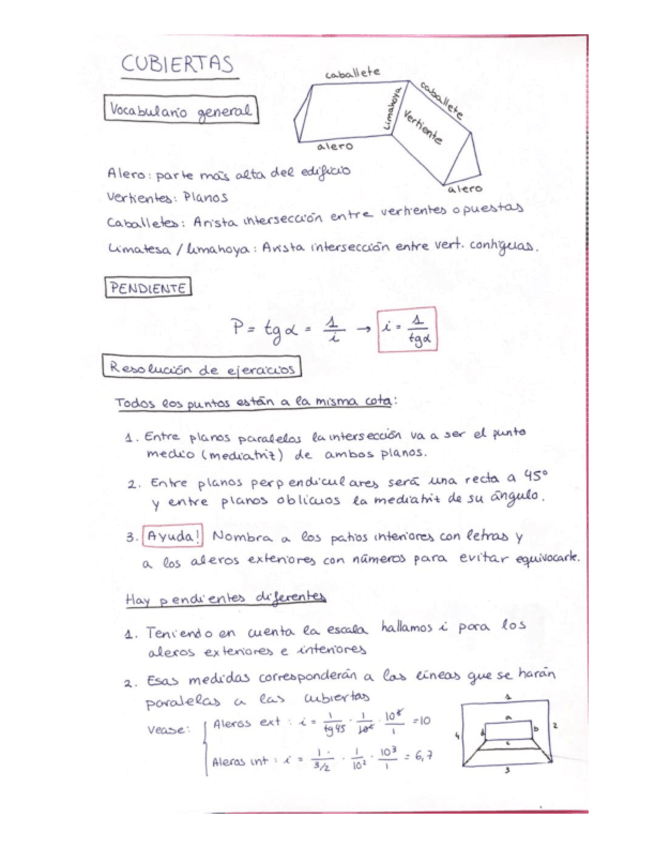 CUBIERTAS
Vocabulario general
caballete
caballete
Limahoya
Vertiente
alero
alero
Alero: parte más alta del edificio
Vertientes: Planos
Caballetes: Arista intersección entre vertientes opuestas
Limatesa / limahoya: Arista intersección entre vert. contiguas.
PENDIENTE
P = tg α = 1/i → i = 1/tg α
Resolución de ejercicios
Todos los puntos están a la misma cota:
1. Entre planos paralelos la intersección va a ser el punto
medio (mediatriz) de ambos planos.
2. Entre planos perpendiculares será una recta a 45°
y entre planos oblicuos la mediatriz de su ángulo.
3. Ayuda! Nombra a los patios interiores con letras y
a los aleros exteriores con números para evitar equivocarte.
Hay pendientes diferentes
1. Teniendo en cuenta la escala hallamos i para los
aleros exteriores e interiores
2. Esas medidas corresponderán a las líneas que se harán
paralelas a las cubiertas
Vease: Aleros ext : i = 1/tg 45 ·
Aleros int : i = 1/3/2 · 1/10² · 10³/1 = 6,7
1
a
4
d
b
2
c
3